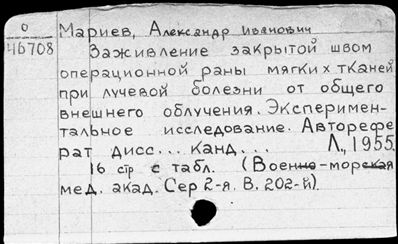 0
46708
Мариев, Александр Иванович
Заживление закрытой швом
операционной раны мягких тканей
при лучевой болезни от общего
внешнего облучения. Эксперимен-
тальное исследование. Авторефе
рат дисс... канд... Л., 1955.
16 стр с табл. (Военно-морская
мед. акад. Сер 2-я. В. 202-й).